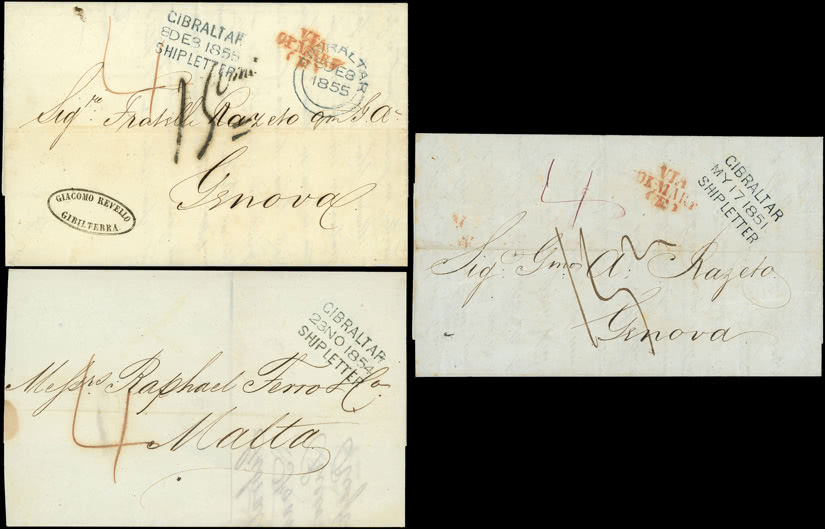 GIBRALTAR
8DE8 1855
SHIPLETTER
VIA
DI MARE
(E)
GIBRALTAR
DE8
1855
4
15
Sigre Fratelli Razeto qm G. A.
Genova
GIACOMO REVELLO
GIBILTERRA
GIBRALTAR
MY 17 1851
SHIPLETTER
VIA
DI MARE
(E)
4
15
Sigr Gmo A: Razeto
Genova
GIBRALTAR
23NO1854
SHIPLETTER
Messrs Raphael Ferro & Co.
4
Malta